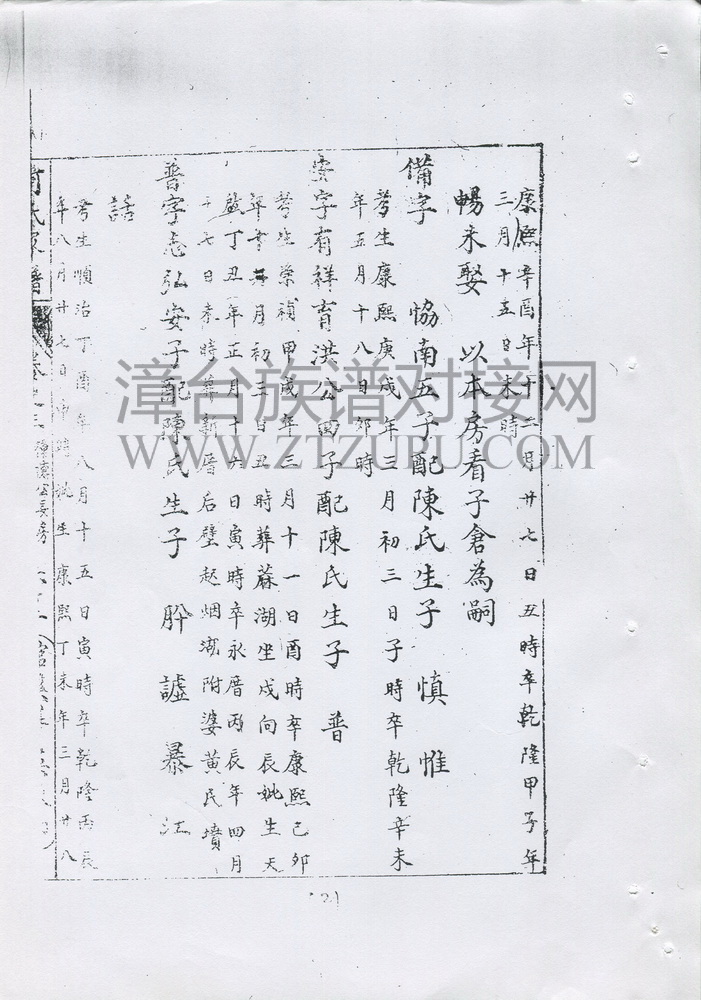 康熙辛酉年十二月廿七日丑時卒乾隆甲子年
三月十五日未時
暢未娶 以本房看子倉為嗣
備字 協南五子配陳氏生子 慎 惟
考生康熙庚戌年三月初三日子時卒乾隆辛未
年五月十八日卯時
安字有祥育洪公四子配陳氏生子 普
考生崇禎甲戌年三月十一日酉時卒康熙己卯
年 月初三日丑時葬蔴湖坐戌向辰妣生天
啟丁丑年正月十六日寅時卒永曆丙辰年四月
十七日 時葬新厝后壁起烟 附婆黃氏墳
普字志弘安子配陳氏生子 謔 暴 江
話
考生順治丁酉年八月十五日寅時卒乾隆丙辰
年八月廿七日申時妣生康熙丁未年三月廿八
氏家譜 卷之三
漳台族谱对接网
WWW.ZTZUPU.COM